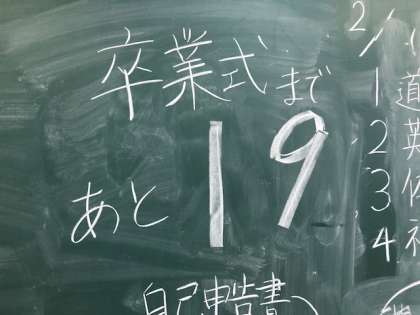 卒業式まで
あと 19
自己申告書
2/
1 道
2 英
3
4